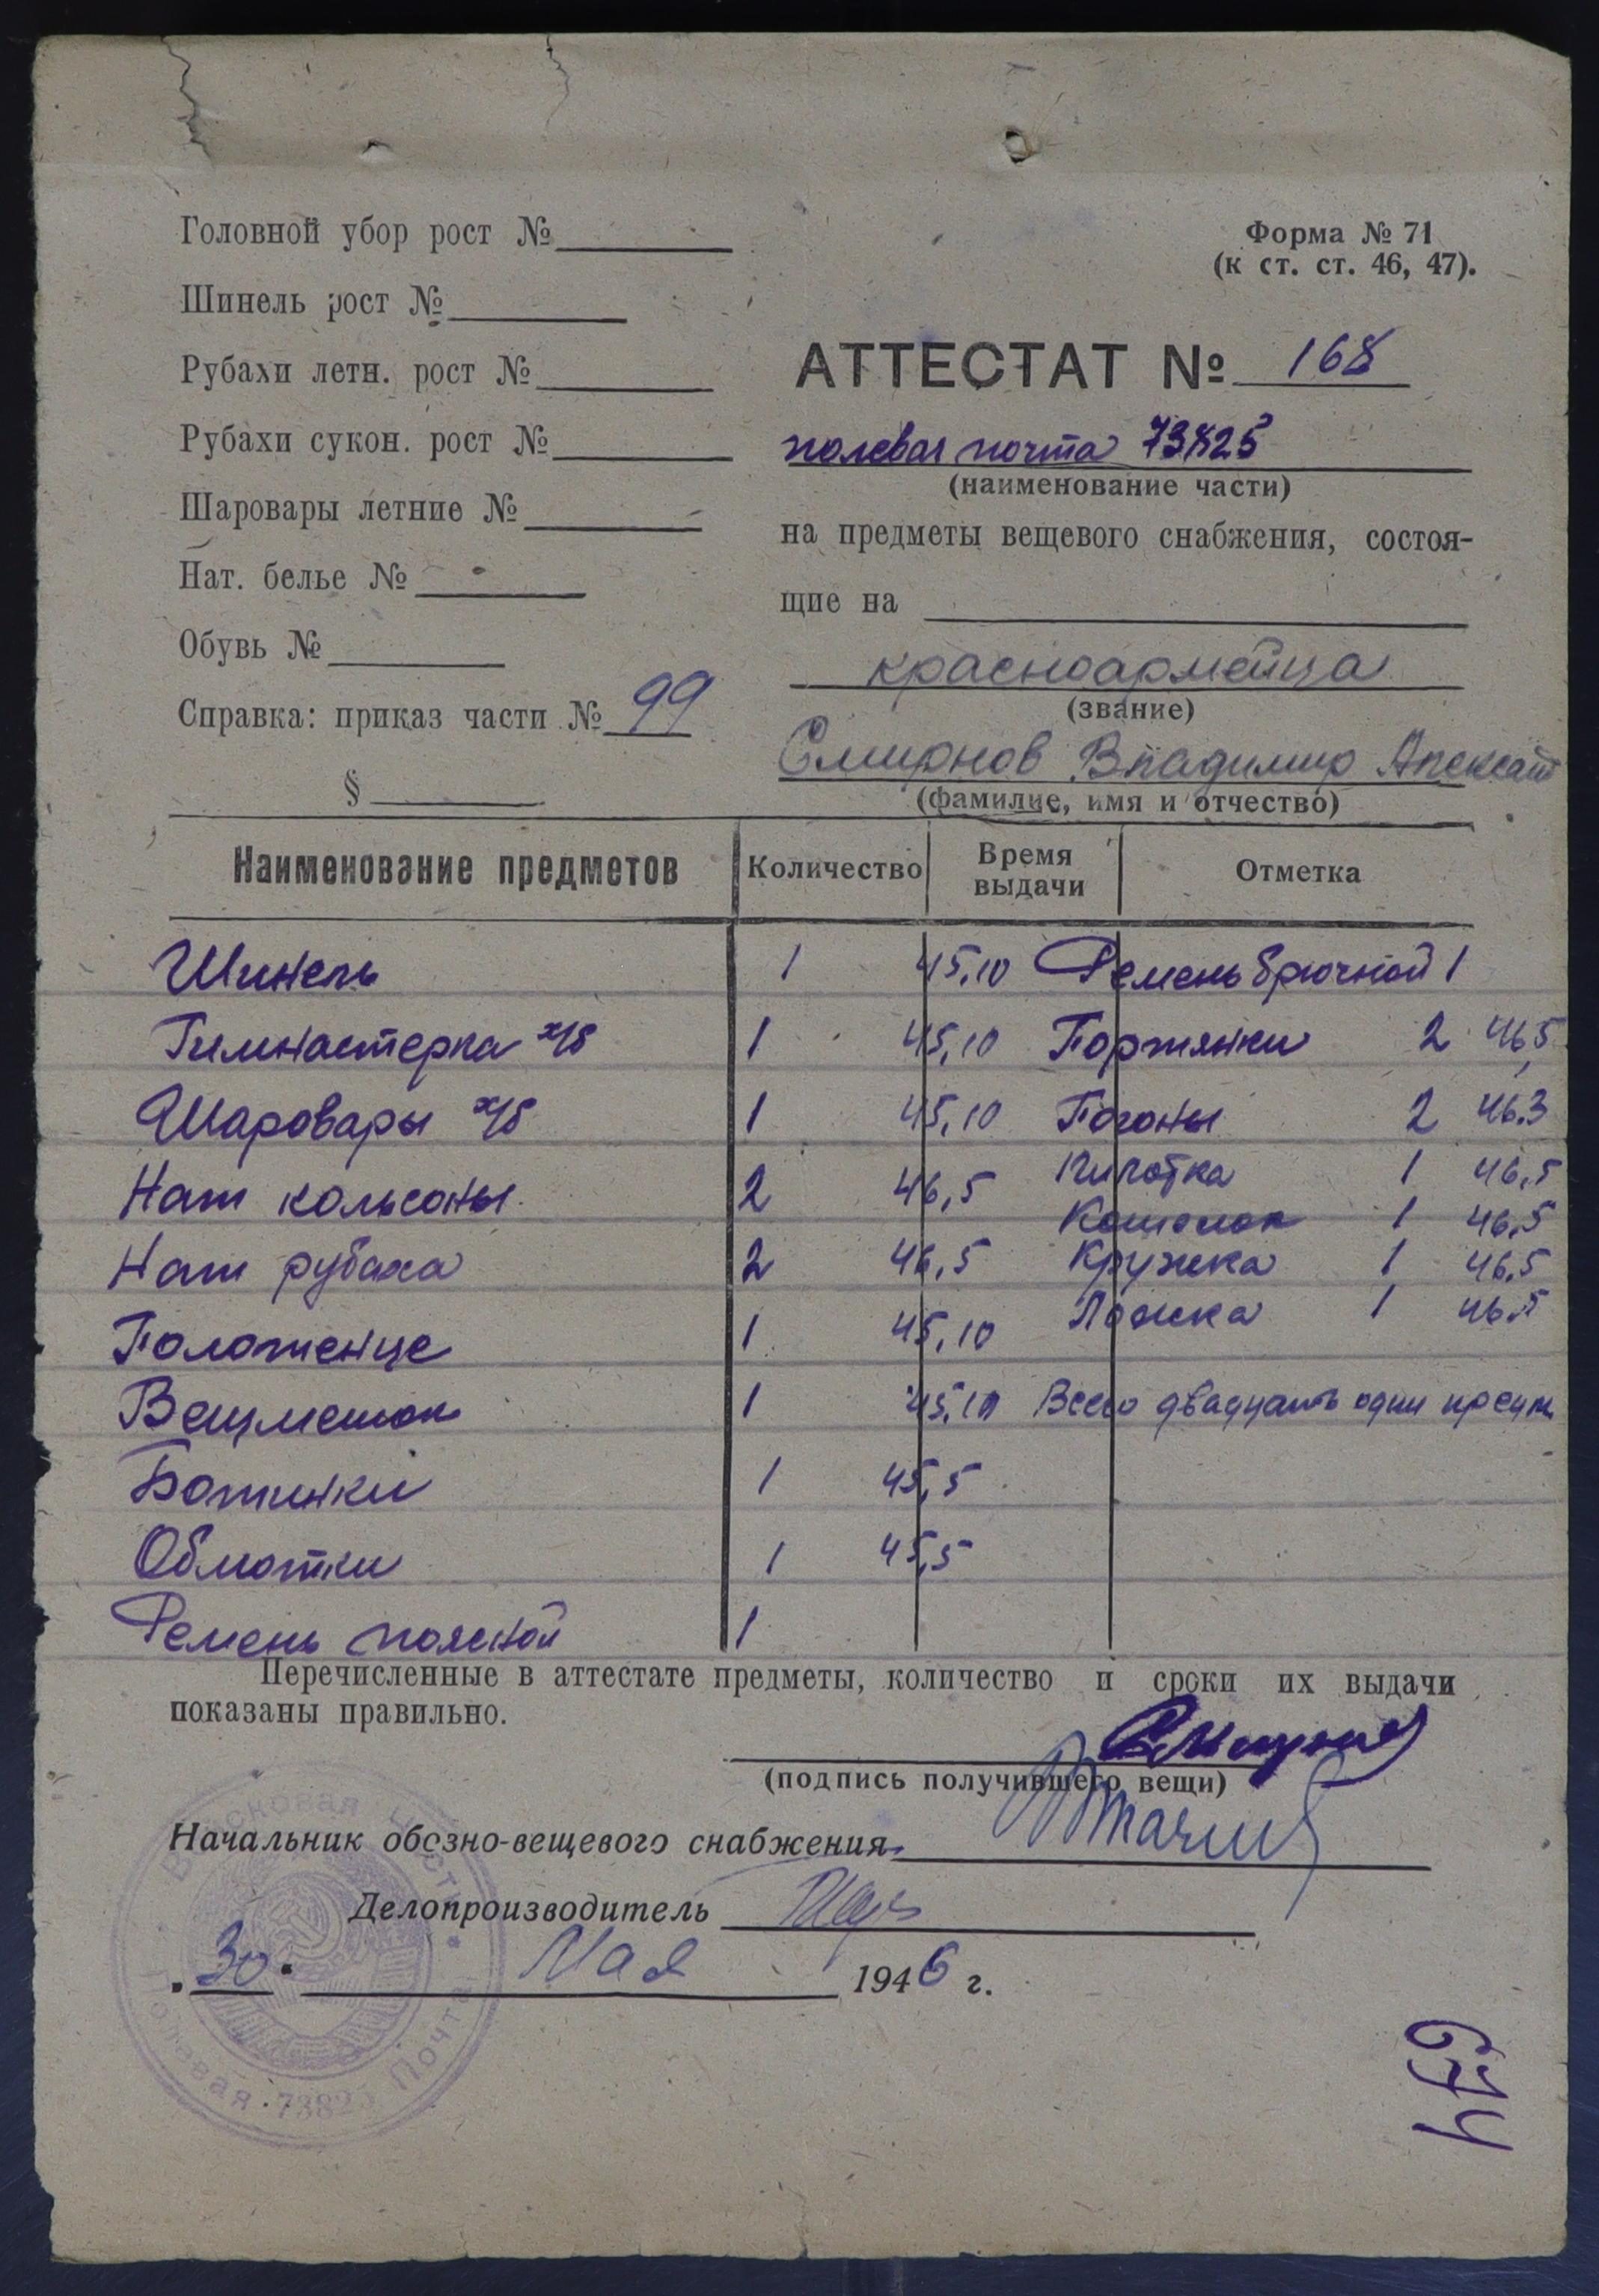 Головной убор рост №
Шинель рост №
Рубахи летн. рост №
Рубахи сукон. рост №
Шаровары летние №
Нат. белье №
Обувь №
Справка: приказ части № 99
§
Форма № 71
(к ст. ст. 46, 47).
АТТЕСТАТ № 168
полевая почта 73825
(наименование части)
на предметы вещевого снабжения, состоя-
щие на
красноармейца
(звание)
Смирнов Владимир Александ
(фамилие, имя и отчество)
Наименование предметов Количество Время выдачи Отметка
Шинель 1 45,10 Ремень брючной 1
Гимнастерка х/б 1 45,10 Портянки 2 46,5
Шаровары х/б 1 45,10 Погоны 2 46.3
Нат кольсоны 2 46,5 Пилотка 1 46,5
Котелок 1 46,5
Нат рубаха 2 46,5 Кружка 1 46.5
Ложка 1 46.5
Полотенце 1 45,10
Вещмешок 1 45,10 Всего двадцать один предм
Ботинки 1 45,5
Обмотки 1 45,5
Ремень поясной 1
Перечисленные в аттестате предметы, количество и сроки их выдачи
показаны правильно.
(подпись получившего вещи)
Начальник обозно-вещевого снабжения
Делопроизводитель
"30" Мая 1946 г.
Войсковая часть
Полевая Почта 73825
674